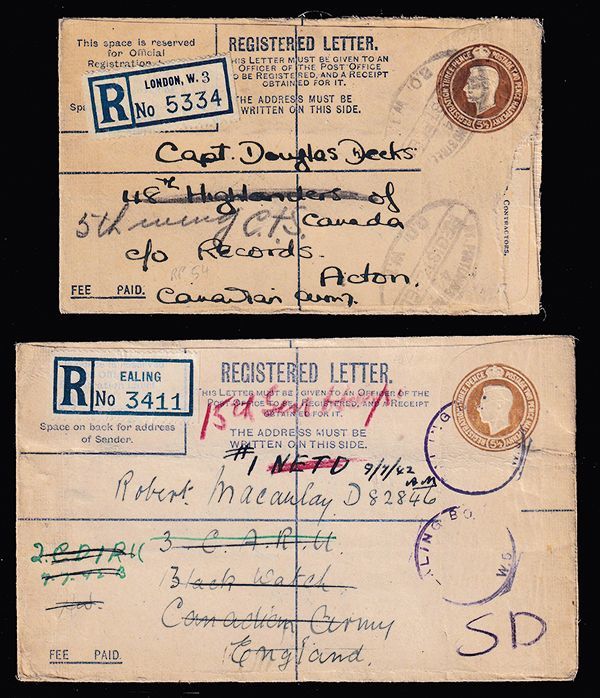 This space is reserved
for Official
Registration
REGISTERED LETTER.
THIS LETTER MUST BE GIVEN TO AN
OFFICER OF THE POST OFFICE
TO BE REGISTERED, AND A RECEIPT
OBTAINED FOR IT.
THE ADDRESS MUST BE
WRITTEN ON THIS SIDE.
LONDON, W. 3
R No 5334
Capt. Douglas Deeks
48th Highlanders of
5th Canada
c/o Records.
Acton.
Canadian Army.
CONTRACTORS.
FEE PAID.
REGISTERED LETTER.
THIS LETTER MUST BE GIVEN TO AN OFFICER OF THE
POST OFFICE TO BE REGISTERED, AND A RECEIPT
OBTAINED FOR IT.
THE ADDRESS MUST BE
WRITTEN ON THIS SIDE.
EALING
R No 3411
Space on back for address
of Sender.
15th Gen Hosp
#1 NETD 9/7/42
A.M
Robert Macaulay D82846
3 C.A.R.U.
Black Watch
Canadian Army
England.
W5
SD
FEE PAID.